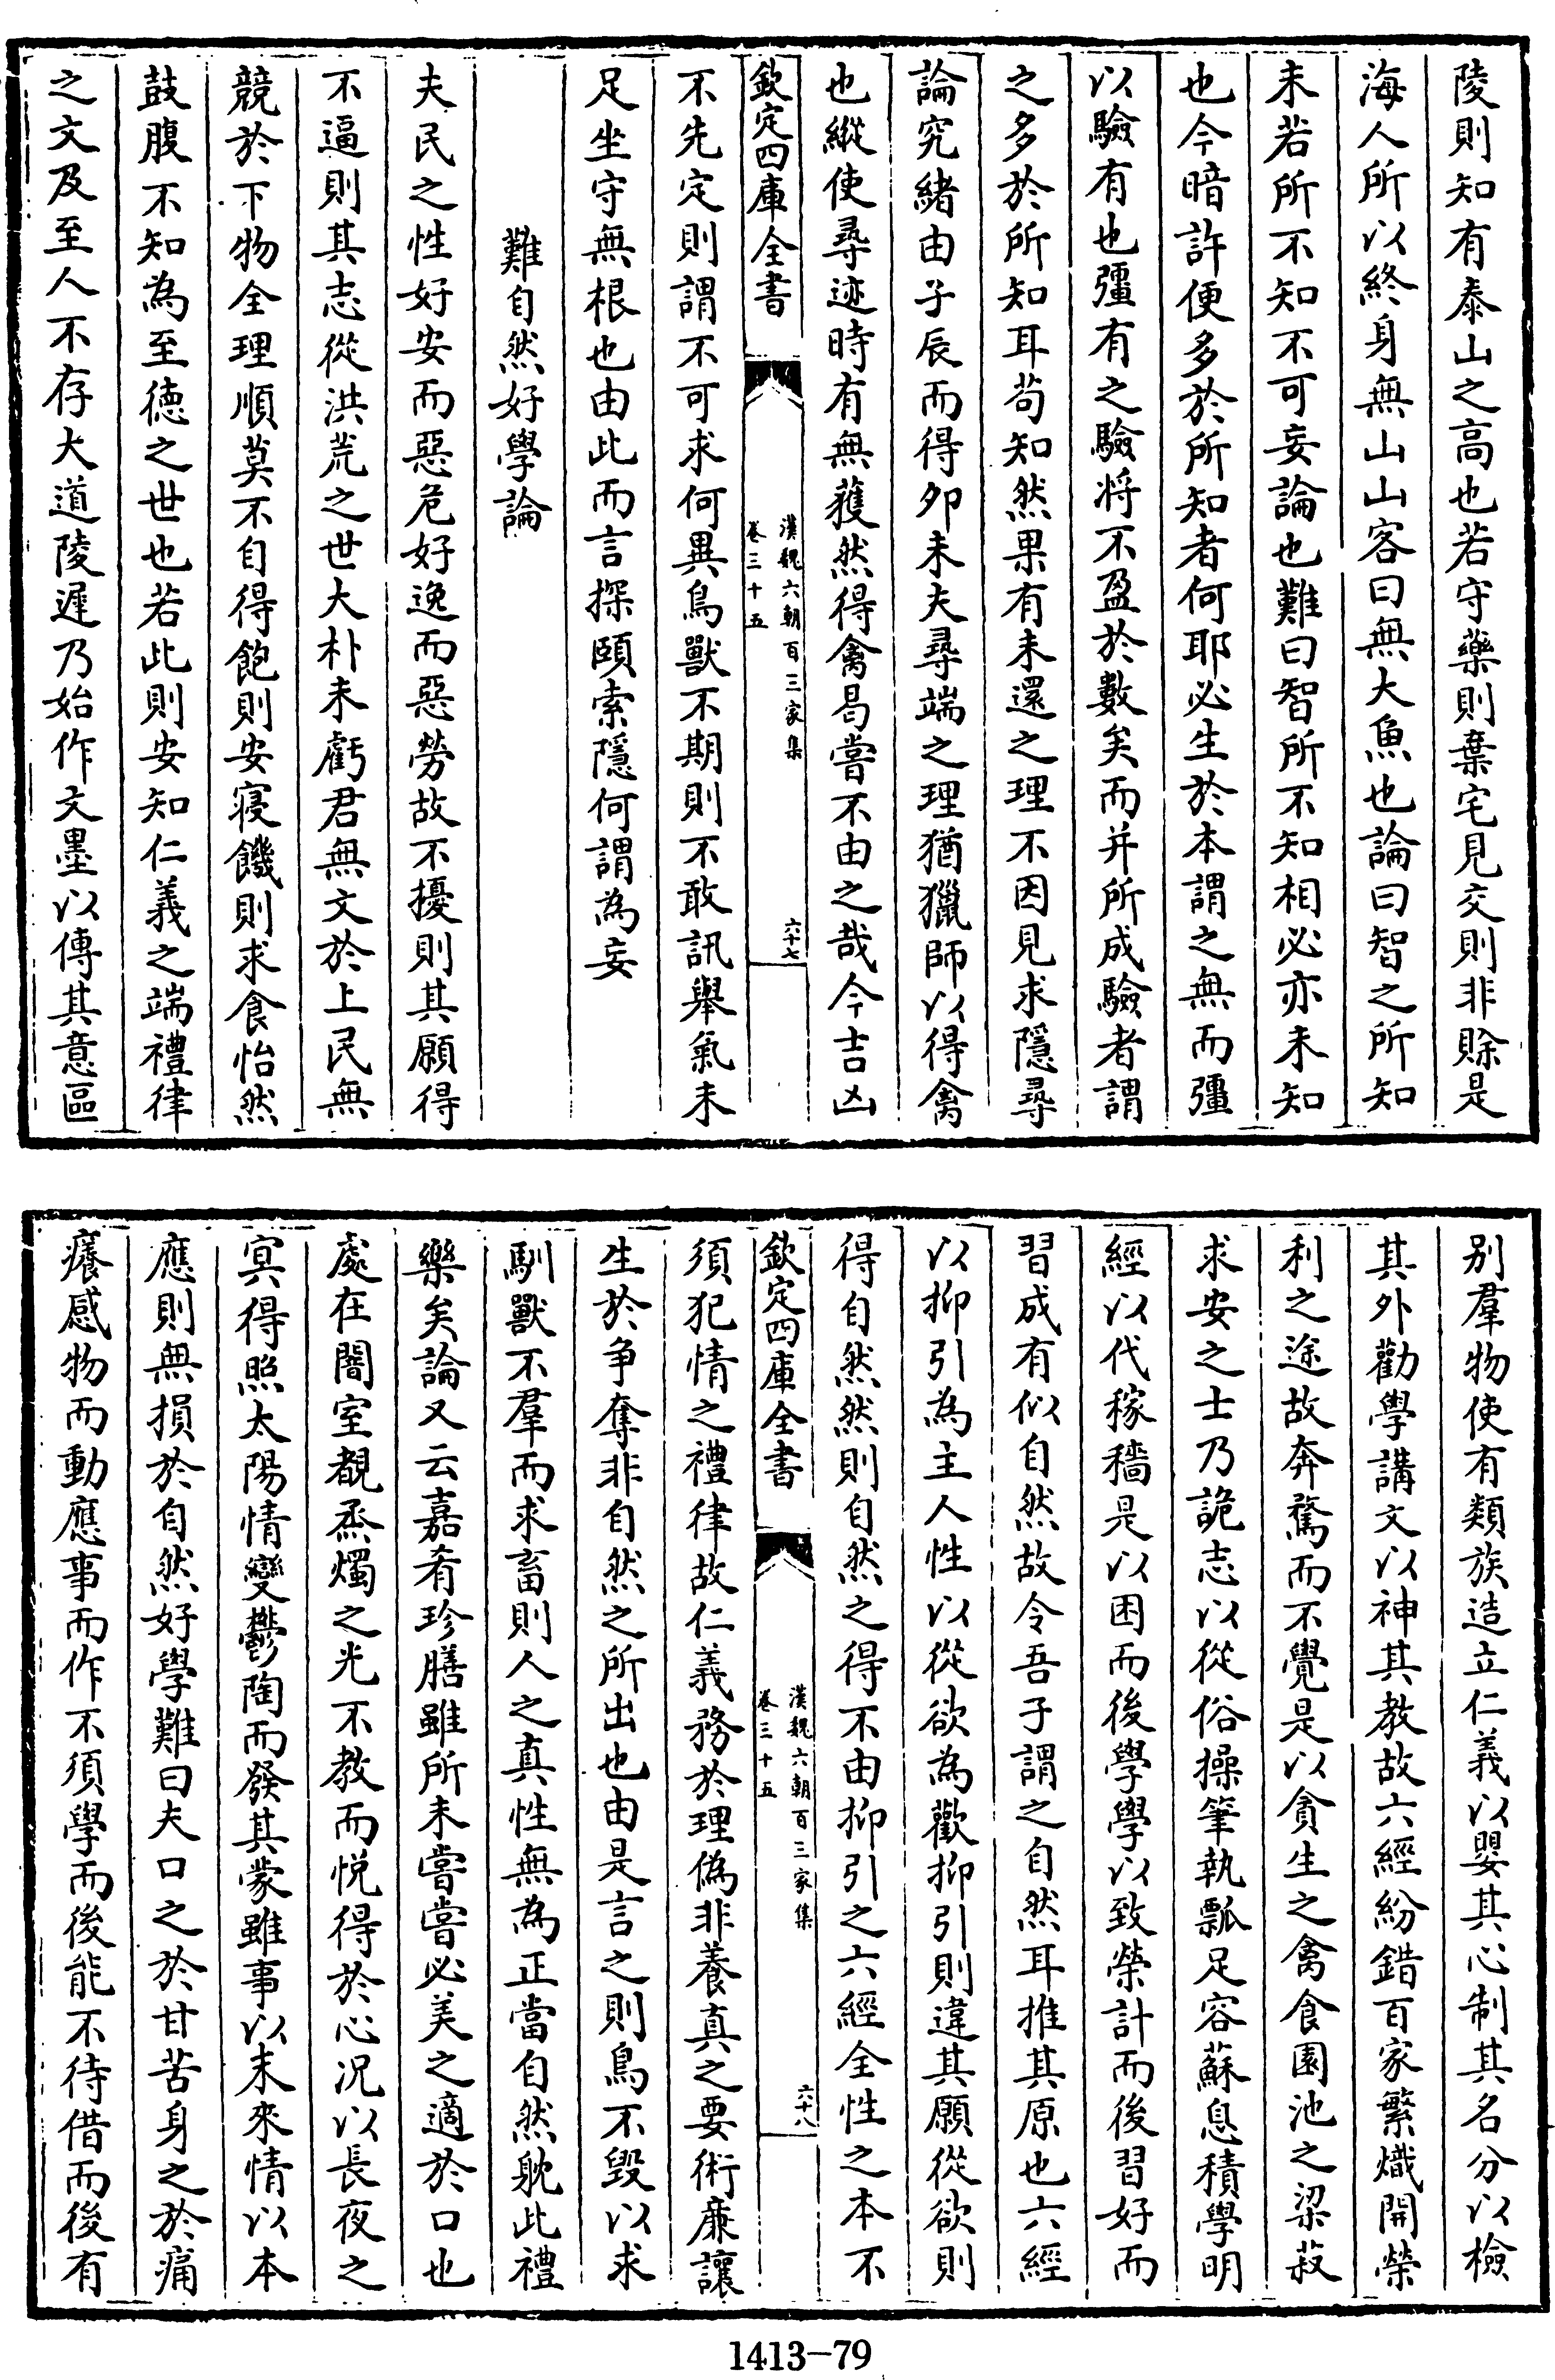 陵則知有泰山之高也若守藥則棄宅見交則非賒是
海人所以終身無山山客曰無大魚也論曰智之所知
未若所不知不可妄論也難曰智所不知相必亦未知
也今暗許便多於所知者何耶必生於本謂之無而彊
以驗有也彊有之驗将不盈於數矣而并所成驗者謂
之多於所知耳苟知然果有未還之理不因見求隱尋
論究緒由子辰而得夘未夫尋端之理猶獵師以得禽
也縱使尋迹時有無獲然得禽曷嘗不由之哉今吉凶
欽定四庫全書
漢魏六朝百三家集
卷三十五
六十七
不先定則謂不可求何異鳥獸不期則不敢訊舉氣未
足坐守無根也由此而言探頤索隱何謂為妄
難自然好學論
夫民之性好安而惡危好逸而惡勞故不擾則其願得
不逼則其志從洪荒之世大朴未虧君無文於上民無
競於下物全理順莫不自得飽則安寝饑則求食怡然
鼓腹不知為至徳之世也若此則安知仁義之端禮律
之文及至人不存大道陵遲乃始作文墨以傳其意區
别羣物使有類族造立仁義以嬰其心制其名分以檢
其外勸學講文以神其教故六經紛錯百家繁熾開榮
利之途故奔騖而不覺是以貪生之禽食園池之梁菽
求安之士乃詭志以從俗操筆執瓢足容蘇息積學明
經以代稼穡是以困而後學學以致榮計而後習好而
習成有似自然故令吾子謂之自然耳推其原也六經
以抑引為主人性以從欲為歡抑引則違其願從欲則
得自然然則自然之得不由抑引之六經全性之本不
欽定四庫全書
漢魏六朝百三家集
卷三十五
六十八
須犯情之禮律故仁義務於理偽非養真之要術亷讓
生於争奪非自然之所出也由是言之則鳥不毁以求
馴獸不羣而求畜則人之真性無為正當自然躭此禮
樂矣論又云嘉肴珍膳雖所未嘗嘗必美之適於口也
處在闇室覩烝燭之光不教而悦得於心况以長夜之
冥得照太陽情變鬱陶而發其蒙雖事以末來情以本
應則無損於自然好學難曰夫口之於甘苦身之於痛
癢感物而動應事而作不須學而後能不待借而後有
1413—79